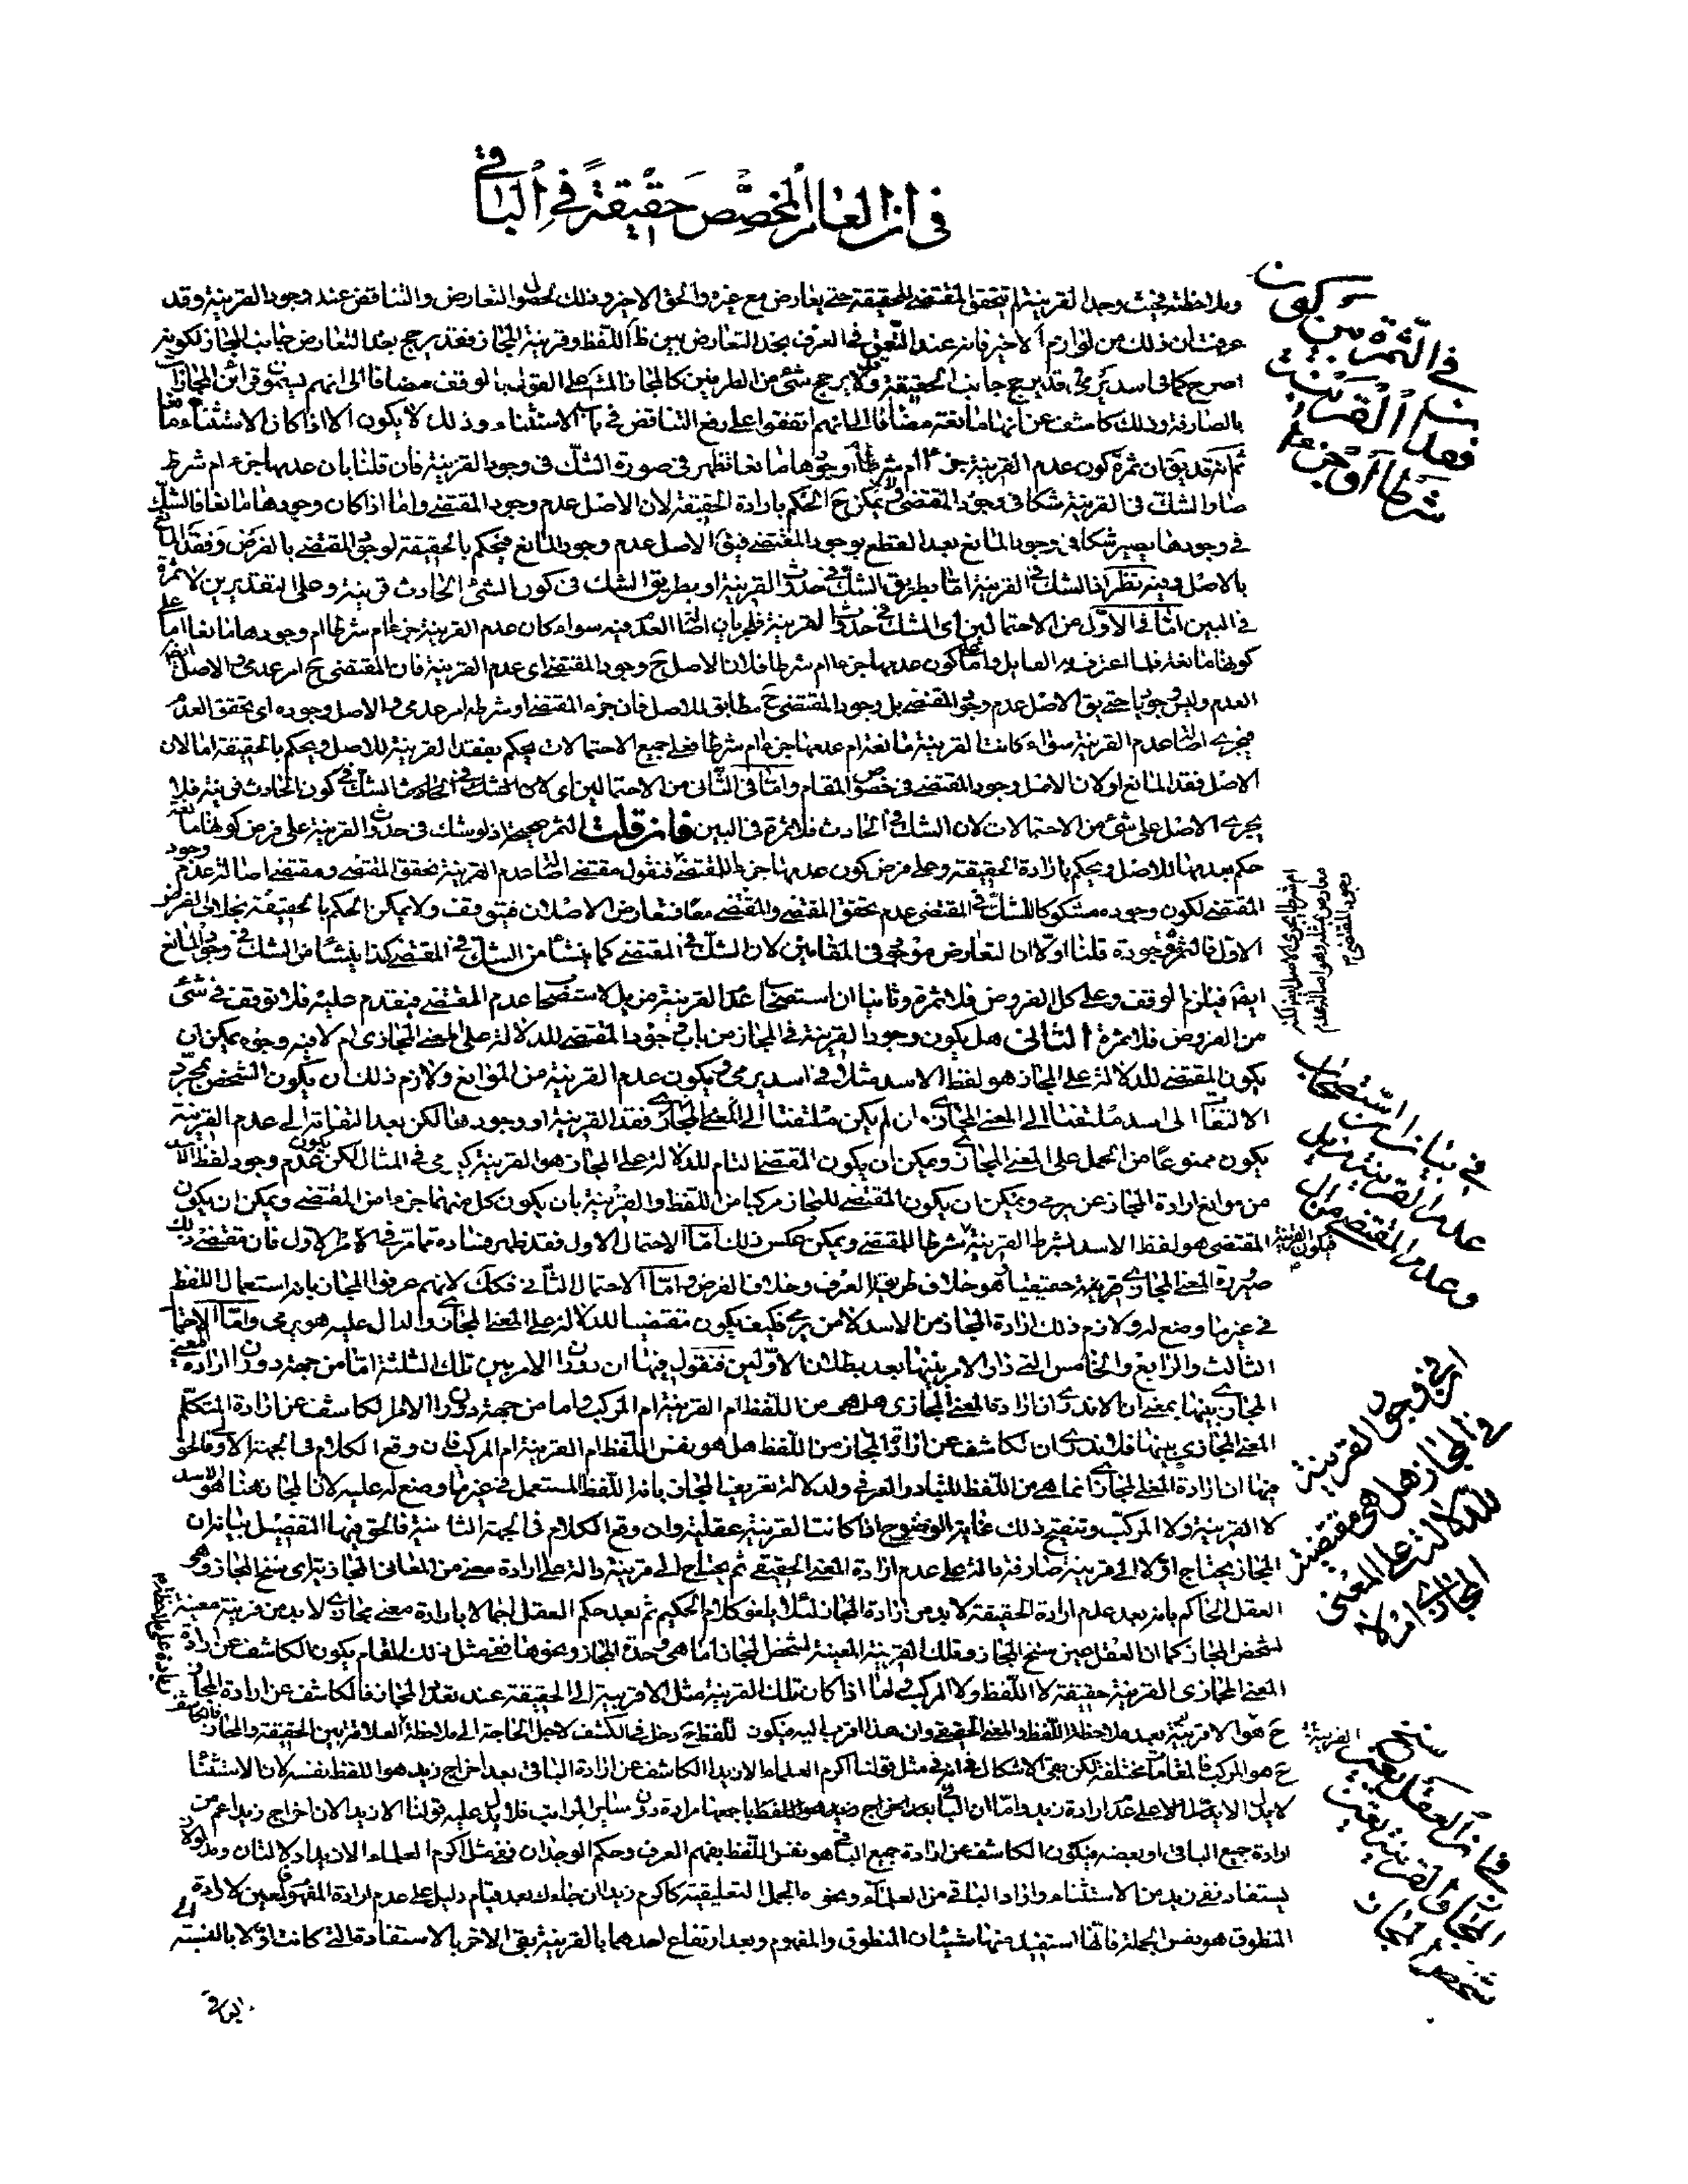 في ان العام المخصص حقيقة في الباقي
وملاحظته فحيث وجد القرينة لم يتحقق المقتضي للحقيقة حتى يعارض مع غيره والحق الاخير وذلك لحصول التعارض والتناقض عند وجود القرينة وقد
عرفت ان ذلك من لوازم الاخير فانه عند التعمق في العرف يجد التعارض بين ظ اللفظ وقرينة المجاز فقد يرجح بعد التعارض جانب المجاز لكونه
اصرح كما في اسد يرمي قد يرجح جانب الحقيقة وقد لا يرجح شئ من الطرفين كالمجاز المشهور على القول بالوقف مضافا الى انهم يسمون قرائن المجازات
بالصارفة وذلك كاشف عن انها مانعة مضافا الى انهم اتفقوا على رفع التناقض في باب الاستثناء وذلك لا يكون الا اذا كان الاستثناء
ثم انه قد يق ان ثمرة كون عدم القرينة جزء ام شرطا او وجودها مانعا تظهر في صورة الشك في وجود القرينة فان قلنا بان عدمها جزء ام شرط
صار الشك في القرينة شكا في وجود المقتضي فلا يمكن ح الحكم بارادة الحقيقة لان الاصل عدم وجود المقتضي واما اذا كان وجودها مانعا فالشك
في وجودها يصير شكا في وجود المانع بعد القطع بوجود المقتضي فيق الاصل عدم وجود المانع فيحكم بالحقيقة لوجود المقتضي بالفرض وفقد المانع
بالاصل وفيه نظر اذ الشك في القرينة اما بطريق الشك في حدوث القرينة او بطريق الشك في كون الشئ الحادث قرينة وعلى التقديرين لا ثمرة
في البين اما في الاول من الاحتمالين اي الشك في حدوث القرينة فلجريان اصالة العدم فيه سواء كان عدم القرينة جزء ام شرطا ام وجودها مانعا اما على
كونها مانعة فلما اعترف به القايل واما على كون عدمها جزء ام شرطا فلان الاصل ح وجود المقتضي اي عدم القرينة فان المقتضي ح امر عدمي والاصل
العدم وليس وجوديا حتى يق الاصل عدم وجود المقتضي بل وجود المقتضي ح مطابق للاصل فان جزء المقتضي او شرطه امر عدمي والاصل وجوده اي تحقق العدم
فيجري اصالة عدم القرينة سواء كانت القرينة مانعة ام عدمها جزء ام شرطا فعلى جميع الاحتمالات يحكم بفقد القرينة للاصل ويحكم بالحقيقة اما لان
الاصل فقد المانع او لان الاصل وجود المقتضي في خصوص المقام واما في الثاني من الاحتمالين اي الشك في كون الحادث قرينة فلا
يجري الاصل على شئ من الاحتمالات لان الشك في الحادث فلا ثمرة في البين فان قلت الثمرة صحيحة اذ لو شك في حدوث القرينة على فرض كونها مانعة
حكم بعدمها للاصل ويحكم بارادة الحقيقة وعلى فرض كون عدمها جزء للمقتضي فنقول مقتضى اصالة عدم القرينة تحقق المقتضي ومقتضى اصالة عدم وجود
المقتضي لكون وجوده مشكوكا للشك في المقتضي عدم تحقق المقتضي والمقتضي معا فتعارض الاصلان فيتوقف ولا يمكن الحكم بالحقيقة بخلاف الفرض
الاول فالثمرة موجودة قلنا اولا ان التعارض موجود في المقامين لان الشك في المقتضى كما ينشأ من الشك في المقتضي كذا ينشأ من الشك في وجود المانع
ايضا فيلزم الوقف وعلى كل الفروض فلا ثمرة وثانيا ان استصحاب عدم القرينة مزيل لاستصحاب عدم المقتضي فيقدم عليه فلا توقف في شئ
من الفروض فلا ثمرة الثاني هل يكون وجود القرينة في المجاز من باب وجود المقتضي للدلالة على المعنى المجازي ام لا فيه وجوه يمكن ان
يكون المقتضي للدلالة على المجاز هو لفظ الاسد مثلا في اسد يرمي ويكون عدم القرينة من الموانع ولازم ذلك ان يكون الشخص بمجرد
الالتفات الى اسد ملتفتا الى المعنى المجازي وان لم يكن ملتفتا الى فقد القرينة او وجودها لكن بعد التفاته الى عدم القرينة
يكون ممنوعا من الحمل على المعنى المجازي ويمكن ان يكون المقتضي التام للدلالة على المجاز هو القرينة كيرمي في المثال لكن يكون عدم وجود لفظ الاسد
من موانع ارادة المجاز عن يرمي ويمكن ان يكون المقتضي للمجاز مركبا من اللفظ والقرينة بان يكون كل منهما جزء من المقتضي ويمكن ان يكون
المقتضي هو لفظ الاسد بشرط القرينة فيكون القرينة شرطا للمقتضي ويمكن عكس ذلك اما الاحتمال الاول فقد ظهر فساده مما مر في الامر الاول فان مقتضى ذلك
صيرورة المعنى المجازي حقيقيا وهو خلاف طريقة العرف وخلاف الفرض واما الاحتمال الثاني فكك لانهم عرفوا المجاز بانه استعمال اللفظ
في غير ما وضع له ولازم ذلك ارادة المجاز من الاسد لا من يرمي فكيف يكون مقتضيا للدلالة على المعنى المجازي والدال عليه هو يرمي واما الاحتمال
الثالث والرابع والخامس التي دار الامر بينها بعد بطلان الاولين فنقول فيها ان دوران الامر بين تلك الثلثة اما من جهة دوران ارادة المعنى
المجازي بينها بمعنى انا لا ندري ان ارادة المعنى المجازي هل هي من اللفظ ام القرينة ام المركب واما من جهة دوران الامر الكاشف عن ارادة المتكلم
المعنى المجازي بينها فلا ندري ان الكاشف عن ارادة المجاز من اللفظ هل هو نفس اللفظ ام القرينة ام المركب فان وقع الكلام في الجهة الاولى فالحق
فيها ان ارادة المعنى المجازي انما هي من اللفظ للتبادر العرفي ولدلالة تعريف المجاز بانه اللفظ المستعمل في غير ما وضع له عليه لان المجاز هنا هو الاسد
لا القرينة ولا المركب وتنقيح ذلك غاية الوضوح اذا كانت القرينة عقلية وان وقع الكلام في الجهة الثانية فالحق فيها التفصيل بيانه ان
المجاز يحتاج اولا الى قرينة صارفة دالة على عدم ارادة المعنى الحقيقي ثم يحتاج الى قرينة دالة على ارادة معنى من المعاني المجازية اي سنخ المجاز وهو
العقل الحاكم بانه بعد عدم ارادة الحقيقة لا بد من ارادة المجاز لئلا يلغو كلام الحكيم ثم بعد حكم العقل اجمالا بارادة معنى مجازي لا بد من قرينة معينة
لشخص المجاز كما ان العقل معين سنخ المجاز وتلك القرينة المعينة لشخص المجاز اما هي وحدة المجاز ونحوها ففي مثل ذلك المقام يكون الكاشف عن ارادة
المعنى المجازي القرينة حقيقة لا اللفظ ولا المركب واما اذا كان تلك القرينة مثل الاقربية الى الحقيقة عند تعذر المجاز فالكاشف عن ارادة المجاز
ح هو الاقربية بعد ملاحظة اللفظ والمعنى الحقيقي وان هذا اقرب اليه فيكون للفظ ح دخل في الكشف لاجل الحاجة الى ملاحظة العلاقة بين الحقيقة والمجاز
ح هو المركب فالمقامات مختلفة لكن بقي الاشكال في انه في مثل قولنا اكرم العلماء الا زيدا الكاشف عن ارادة الباقي بعد اخراج زيد هو اللفظ نفسه لان الاستثناء
لا يدل الا على عدم ارادة زيد واما ان الباقي بعد اخراج زيد هو اللفظ باجمعها مرادة دون ساير المراتب فلا يدل عليه قولنا الا زيدا لان اخراج زيد اعم من
ارادة جميع الباقي او بعضه فيكون الكاشف عن ارادة جميع الباقي هو نفس اللفظ بفهم العرف وحكم الوجدان ففي مثل اكرم العلماء الا زيدا
يستفاد نفي زيد من الاستثناء وارادة الباقي من العلماء ونحوه الجمل التعليقية كاكرم زيدا ان جاءك بعد قيام دليل على عدم ارادة المفهوم
المنطوق هو نفس الجملة فانها استفيد منها شيئان المنطوق والمفهوم وبعد ارتفاع احدهما بالقرينة بقي الاخر بالاستفادة التي كانت اولا بالنسبة الى
في الثمرة بين كون
القرينة
شرطا او جزء
في بيان ان استصحاب
عدم القرينة مزيل
وعدم المقتضي
ان وجود القرينة
في المجاز هل هي مقتضية
للدلالة على المعنى
المجازي ام لا
في ان العقل يعين سنخ
المجاز والقرينة يعين
شخص المجاز